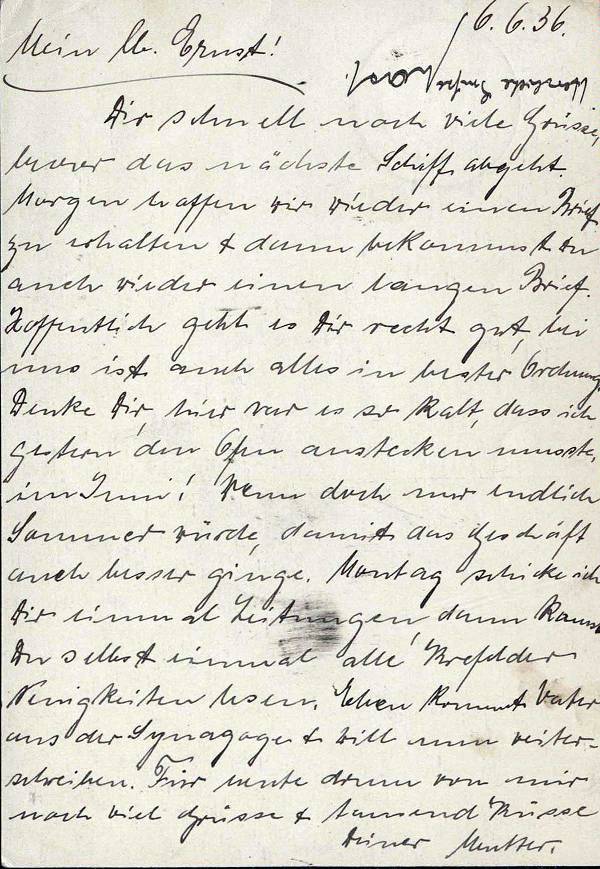 6.6.36.
Mein lb. Ernst!
Dir schnell noch viele Grüsse,
bevor das nächste Schiff abgeht.
Morgen hoffen wir wieder einen Brief
zu erhalten & dann bekommst Du
auch wieder einen langen Brief.
Hoffentlich geht es Dir recht gut, bei
uns ist auch alles in bester Ordnung.
Denke Dir, hier war es so kalt, dass ich
gestern den Ofen anstecken musste,
im Juni! Wenn doch nur endlich
Sommer würde, damit das Geschäft
auch besser ginge. Montag schicke ich
Dir einmal Zeitungen, dann kannst
Du selbst einmal alle Krefelder
Neuigkeiten lesen. Eben kommt Vater
aus der Synagoge & will nun weiter-
schreiben. Für heute drum von mir
noch viel Grüsse & tausend Küsse
Deiner Mutter.